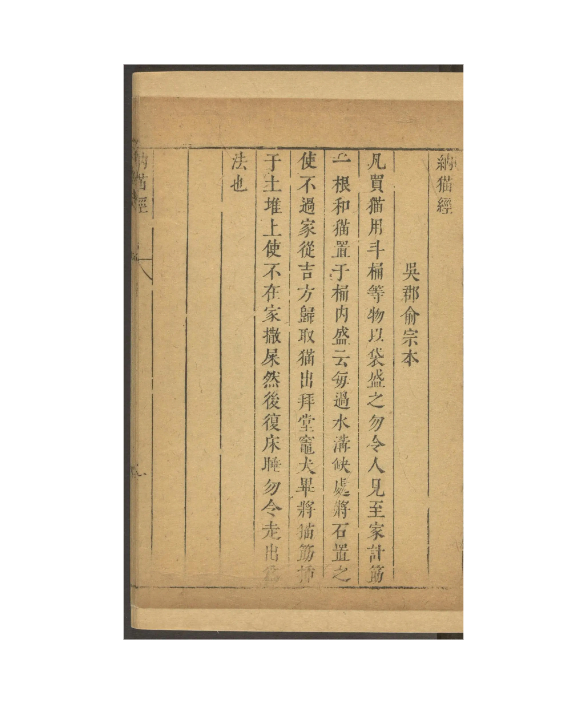 納猫經
吳郡俞宗本
凡買猫用斗桶等物以袋盛之勿令人見至家計筯
一根和猫置于桶内盛云每過水溝缺處將石置之
使不過家從吉方歸取猫出拜堂竈犬畢將猫筯插
于土堆上使不在家撒屎然後復床睡勿令走出爲
法也
納猫經